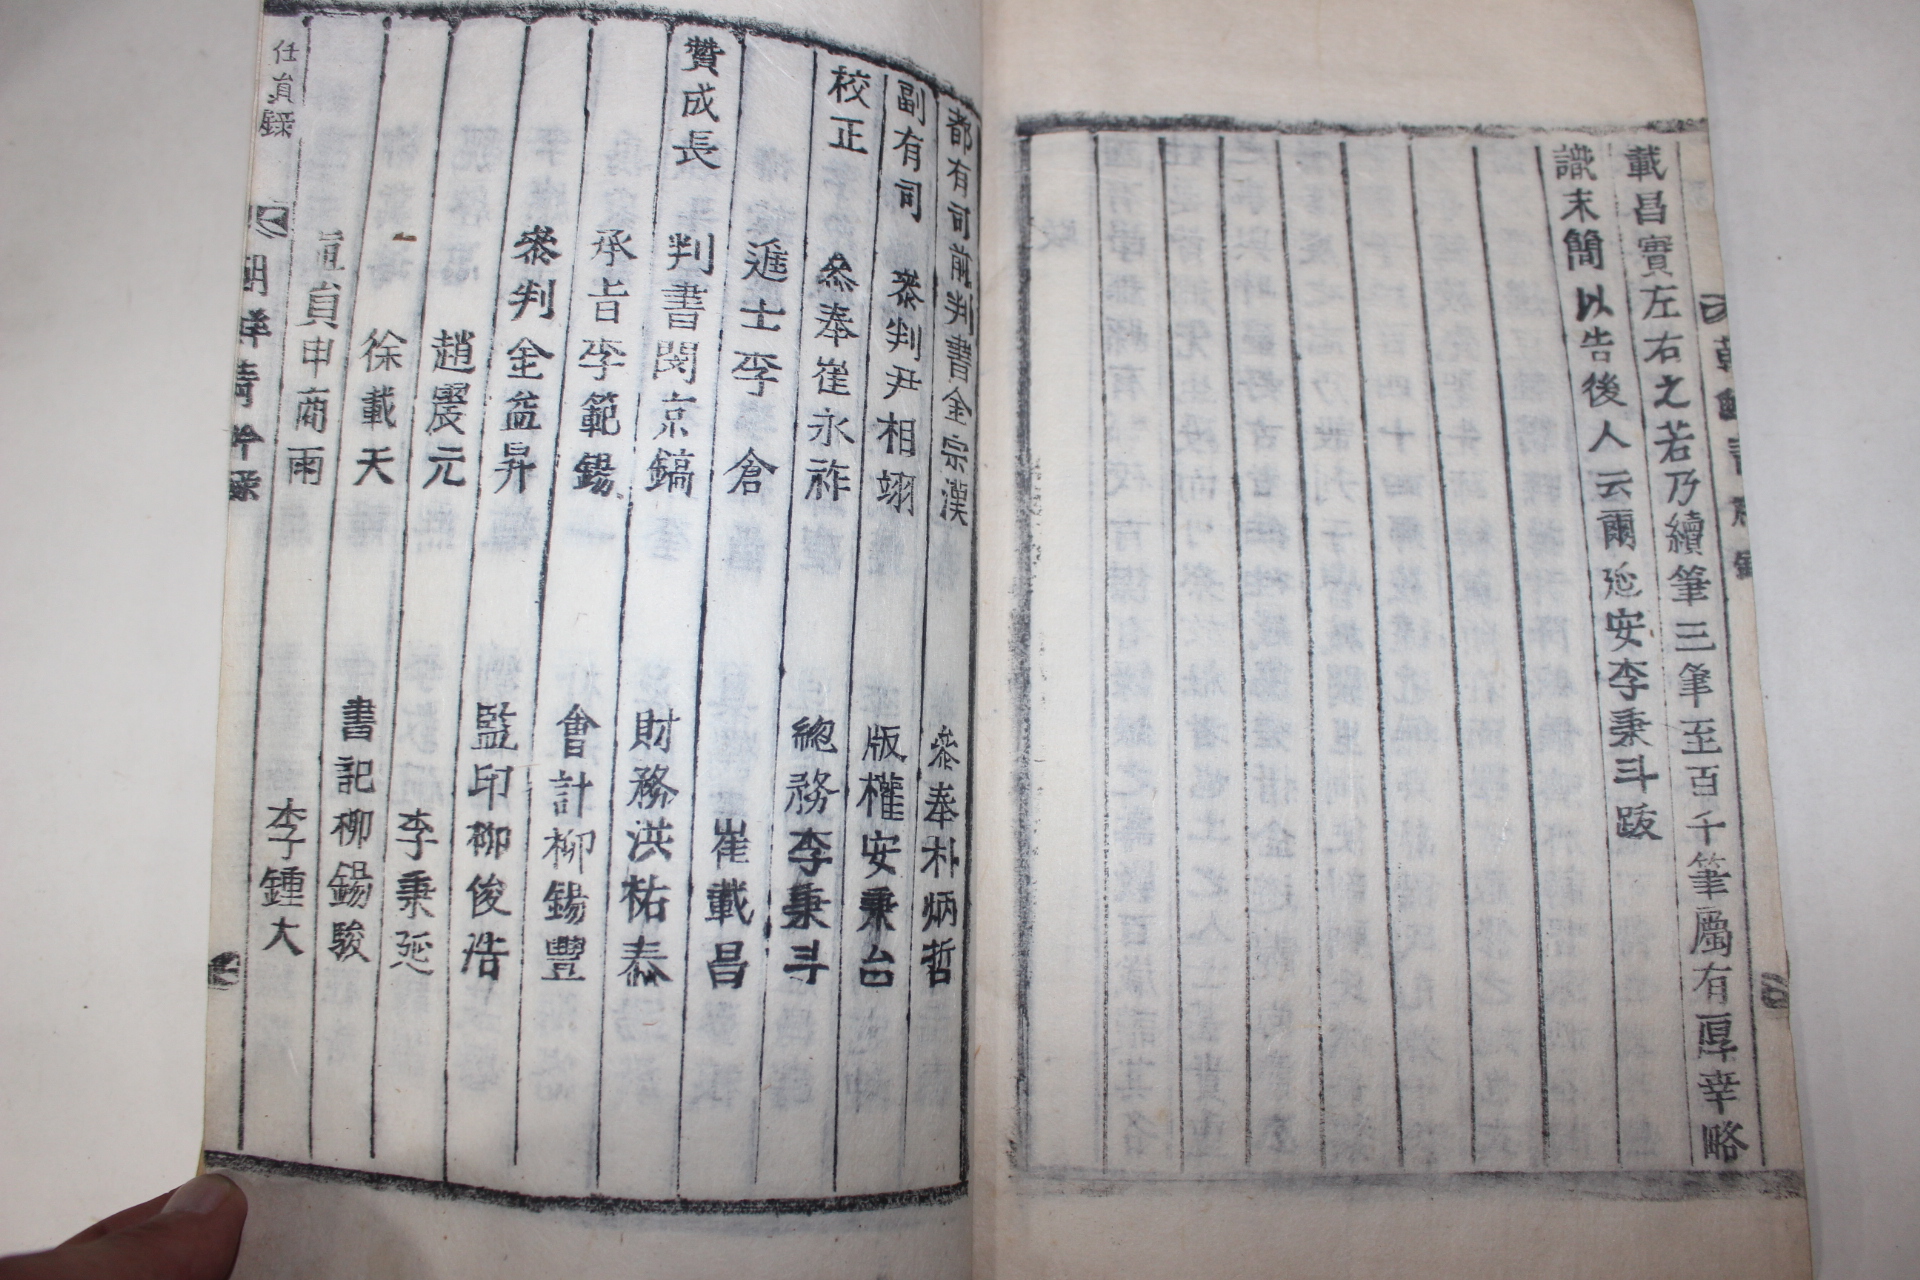 載昌實左右之若乃續筆三筆至百千筆屬有厚幸略
識末簡以告後人云爾延安李秉斗跋
都有司前判書金宗漢
參奉朴炳哲
副有司 參判尹相翊
版權安秉台
校正 參奉崔永祚
總務李秉斗
進士李倉
崔載昌
贊成長 判書閔京鎬
財務洪祐泰
承旨李範錫
會計柳錫豐
參判金益昇
監印柳俊浩
趙震元
李秉延
徐載天
書記柳錫駿
直員申商雨
李鍾大
任員錄
朝鮮耆齡錄